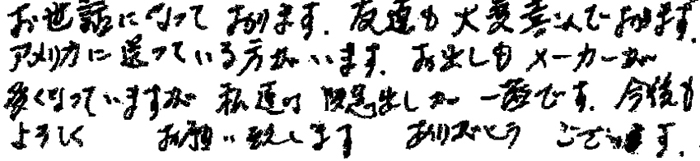 お世話になって おります. 友達も 大変喜んでおります.
アメリカに送っている方がいます. お出しも メーカーが
多くなっていますが 私達は 阪急出しが 一番です. 今後も
よろしく お願い致します ありがとう ございます.